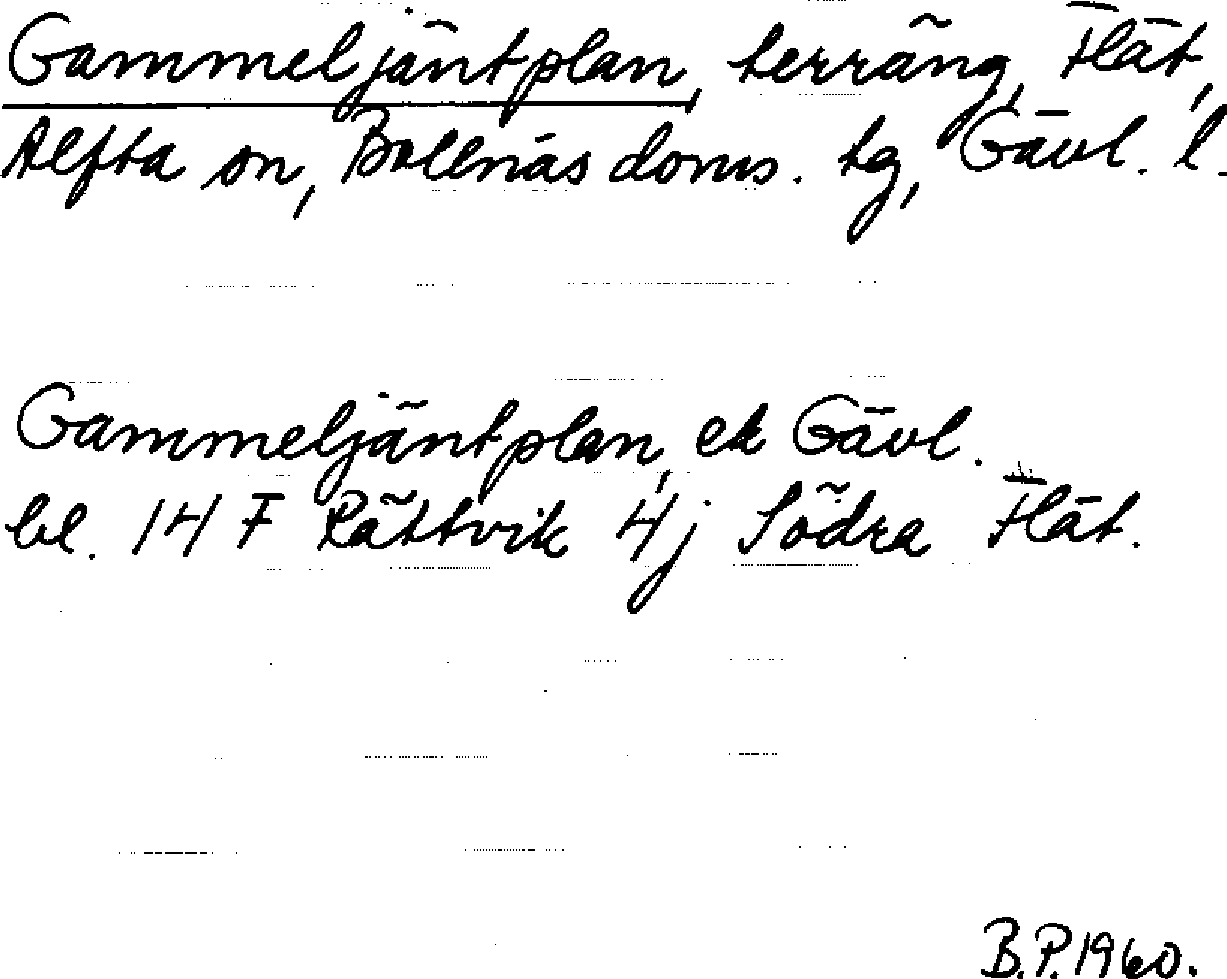 Gammeljäntplan, terräng, Flät,
Alfta sn, Bollnäs doms. tg, Gävl. l.
Gammeljäntplan, ek Gävl.
bl. 14 F Rättvik 4j Södra Flät.
B.P. 1960.